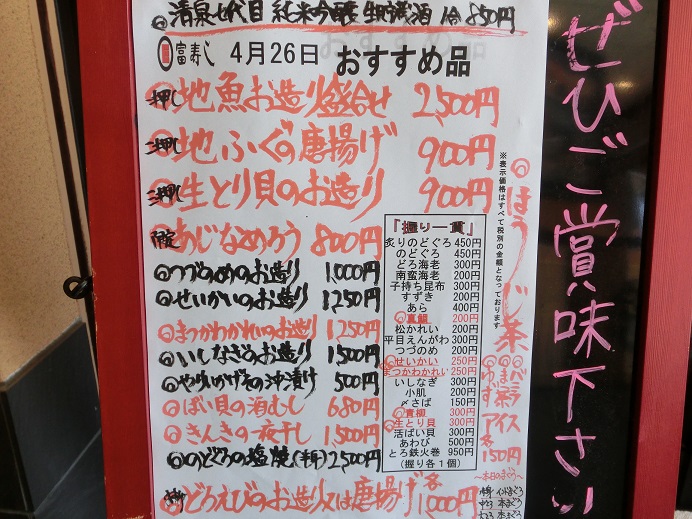 清泉七代目 純米吟醸 生貯蔵酒 1合 850円
富寿し 4月26日 おすすめ品
一押し 地魚お造り盛合せ 2,500円
二押し 地ふぐの唐揚げ 900円
三押し 生とり貝のお造り 900円
限定 あじなめろう 800円
つづのめのお造り 1,000円
せいかいのお造り 1,250円
まつかわかれいのお造り 1,250円
いしなぎのお造り 1,500円
やりいかげその沖漬け 500円
ばい貝の酒むし 680円
きんきの一夜干し 1,500円
のどぐろの塩焼(半身) 2,500円
どろえびのお造り又は唐揚げ 各1,000円
「握り一貫」
炙りのどぐろ 450円
のどぐろ 450円
どろ海老 300円
南蛮海老 200円
子持ち昆布 300円
すずき 200円
あら 400円
◎真鯛 200円
松かれい 200円
平目えんがわ 300円
つづのめ 200円
◎せいかい 250円
まつかわかれい 250円
いしなぎ 300円
小肌 200円
〆さば 150円
◎青柳 300円
◎生とり貝 300円
活ばい貝 200円
あわび 500円
とろ鉄火巻 950円
(握り各1個)
※表示価格はすべて税別の金額となっております
ほうじ茶
バニラ
抹茶
ゆず
アイス
各150円
~本日のまぐろ~
ぜひご賞味下さい